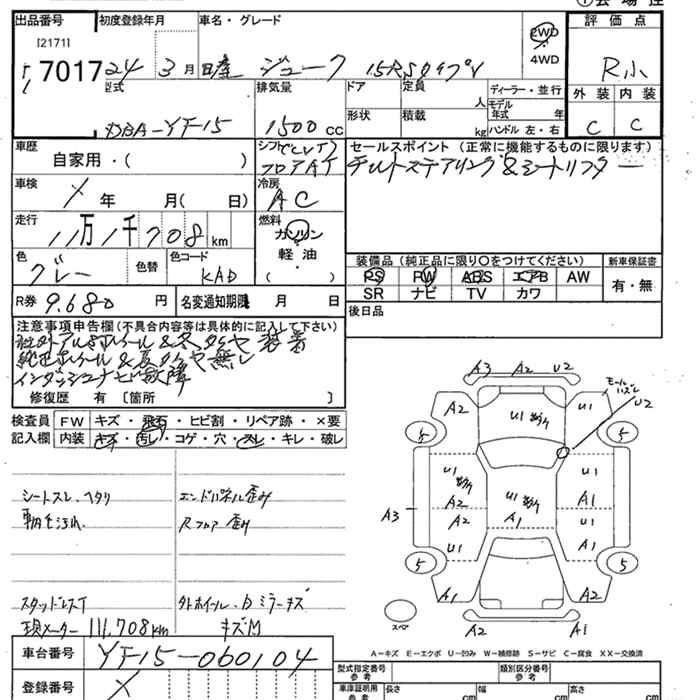 出品番号 初度登録年月 車名・グレード 評価点
[2171]
7017 24 3月 日産 ジューク 15RS タイプV 2WD・4WD R小
外装 内装
C C
型式 排気量 ドア 定員 人 ディーラー・並行
DBA-YF15 1500 cc 形状 積載 kg モデル年式 年
ハンドル 左・右
車歴 シフト セールスポイント(正常に機能するものに限ります)
自家用・( ) フロアAT チルトステアリング&シートリフター
車検 冷房
X 年 月( 日) AC
走行 燃料
11万1千708km ガソリン
軽油・
( )
色 色替 色コード 装備品(純正品に限り○をつけてください) 新車保証書
グレー KAD PS PW ABS エアB AW 有・無
SR ナビ TV カワ
R券 9.680 円 名変通知期限 月 日 後日品
注意事項申告欄(不具合内容等は具体的に記入して下さい)
社外アルミホイール&冬タイヤ装着
純正ホイール&夏タイヤ無し
インダッシュナビ故障
修復歴 有〔箇所 〕
検査員 FW キズ・飛石・ヒビ割・リペア跡・×要
記入欄 内装 キズ・汚レ・コゲ・穴・スレ・キレ・破レ
シートスレ、ヘタリ エンドパネル歪み
車内汚れ Rフロア歪み
スタッドレスT 外ホイール、Dミラーキズ
現メーター 111,708km キズM
A3 A2 U2
モールハズレ
U2
A2 U1 U1
5 5
U1 U1
A2 A1
A3 A2 A1 U1
U1 A1
5 5
A1 A2
スペア A2 A1
A−キズ E−エクボ U−凹み W−補修跡 S−サビ C−腐食 XX−交換済
車台番号 YF15-060104
登録番号 X
型式指定番号 参考 類別区分番号 参考
車庫証明用 参考 長さ cm 幅 cm 高さ cm